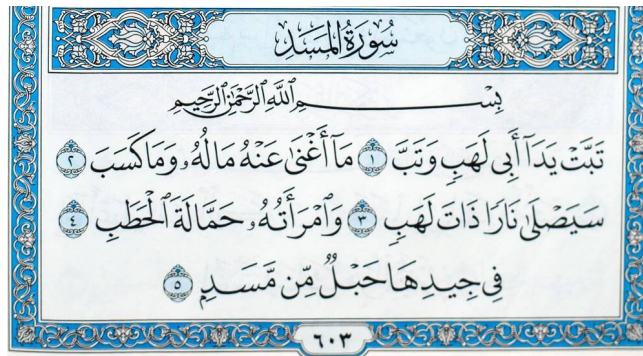 سُورَةُ الْمَسَدِ
بِسْمِ ٱللَّهِ ٱلرَّحْمَٰنِ ٱلرَّحِيمِ
تَبَّتْ يَدَآ أَبِى لَهَبٍ وَتَبَّ ١ مَآ أَغْنَىٰ عَنْهُ مَالُهُۥ وَمَا كَسَبَ ٢
سَيَصْلَىٰ نَارًا ذَاتَ لَهَبٍ ٣ وَٱمْرَأَتُهُۥ حَمَّالَةَ ٱلْحَطَبِ ٤
فِى جِيدِهَا حَبْلٌ مِّن مَّسَدٍۭ ٥
٦٠٣